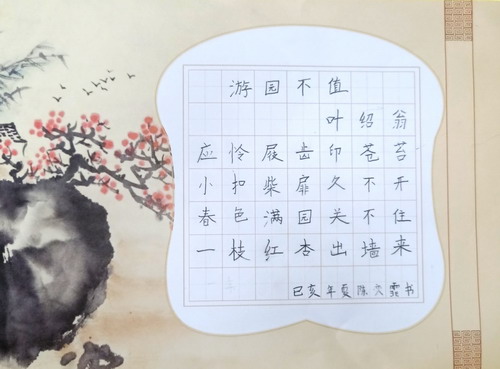 游园不值
叶绍翁
应怜屐齿印苍苔
小扣柴扉久不开
春色满园关不住
一枝红杏出墙来
己亥年夏陈久霏书